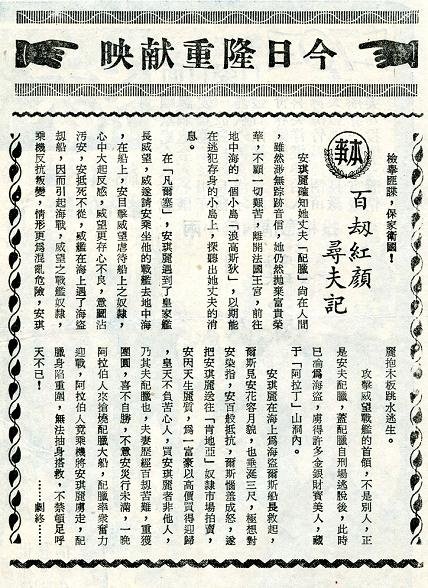 今日隆重献映
檢舉匪諜，保家衛國！
本事
百刼紅顏
尋夫記
安琪麗確知她丈夫「配臘」尙在人間
，雖然涉無踪跡音信，她仍然抛棄富貴榮
華，不顧一切艱苦，離開法國王宮，前往
地中海的一個小島「浪高斯狄」，以期能
在逃犯存身的小島上，探聽出她丈夫的消
息。
在「凡爾塞」，安琪麗遇到了皇家艦
長威望，威遂請安乘坐他的戰艦去地中海
，在船上，安目擊威望虐待船上之奴隸，
心中大起反感，威望更存心不良，意圖沾
污安，安抵死不從，威艦在海上遇了海盜
刼船，因而引起海戰，威望之戰艦奴隸，
乘機反抗叛變，情形更爲混亂危險，安琪
麗抱木板跳水逃生。
攻擊威望戰艦的首領，不是別人，正
是安夫配臘，蓋配臘自刑場逃脫後，此時
已淪爲海盜，虜得許多金銀財寶美人，藏
于「阿拉丁」山洞內。
安琪麗在海上爲海盜爾斯船長救起，
爾斯見安花容月貌，也垂涎三尺，極想對
安染指，安百般抵抗，爾斯惱羞成怒，遂
把安琪麗送往「肯地亞」奴隸市場拍賣，
安因天生麗質，爲一富豪以高價買得迎歸
，皇天不負苦心人，買安琪麗者非他人，
乃其夫配臘也，夫妻歷經百刼苦難，重獲
團圓，喜不自勝，不意安災行未滿，一晚
阿拉伯人來搶燒配臘大船，配臘率衆奮力
迎戰，阿拉伯人竟乘機將安琪麗虜走，配
臘身陷重圍，無法抽身搭救，不禁頓足呼
天不已！　……劇終……